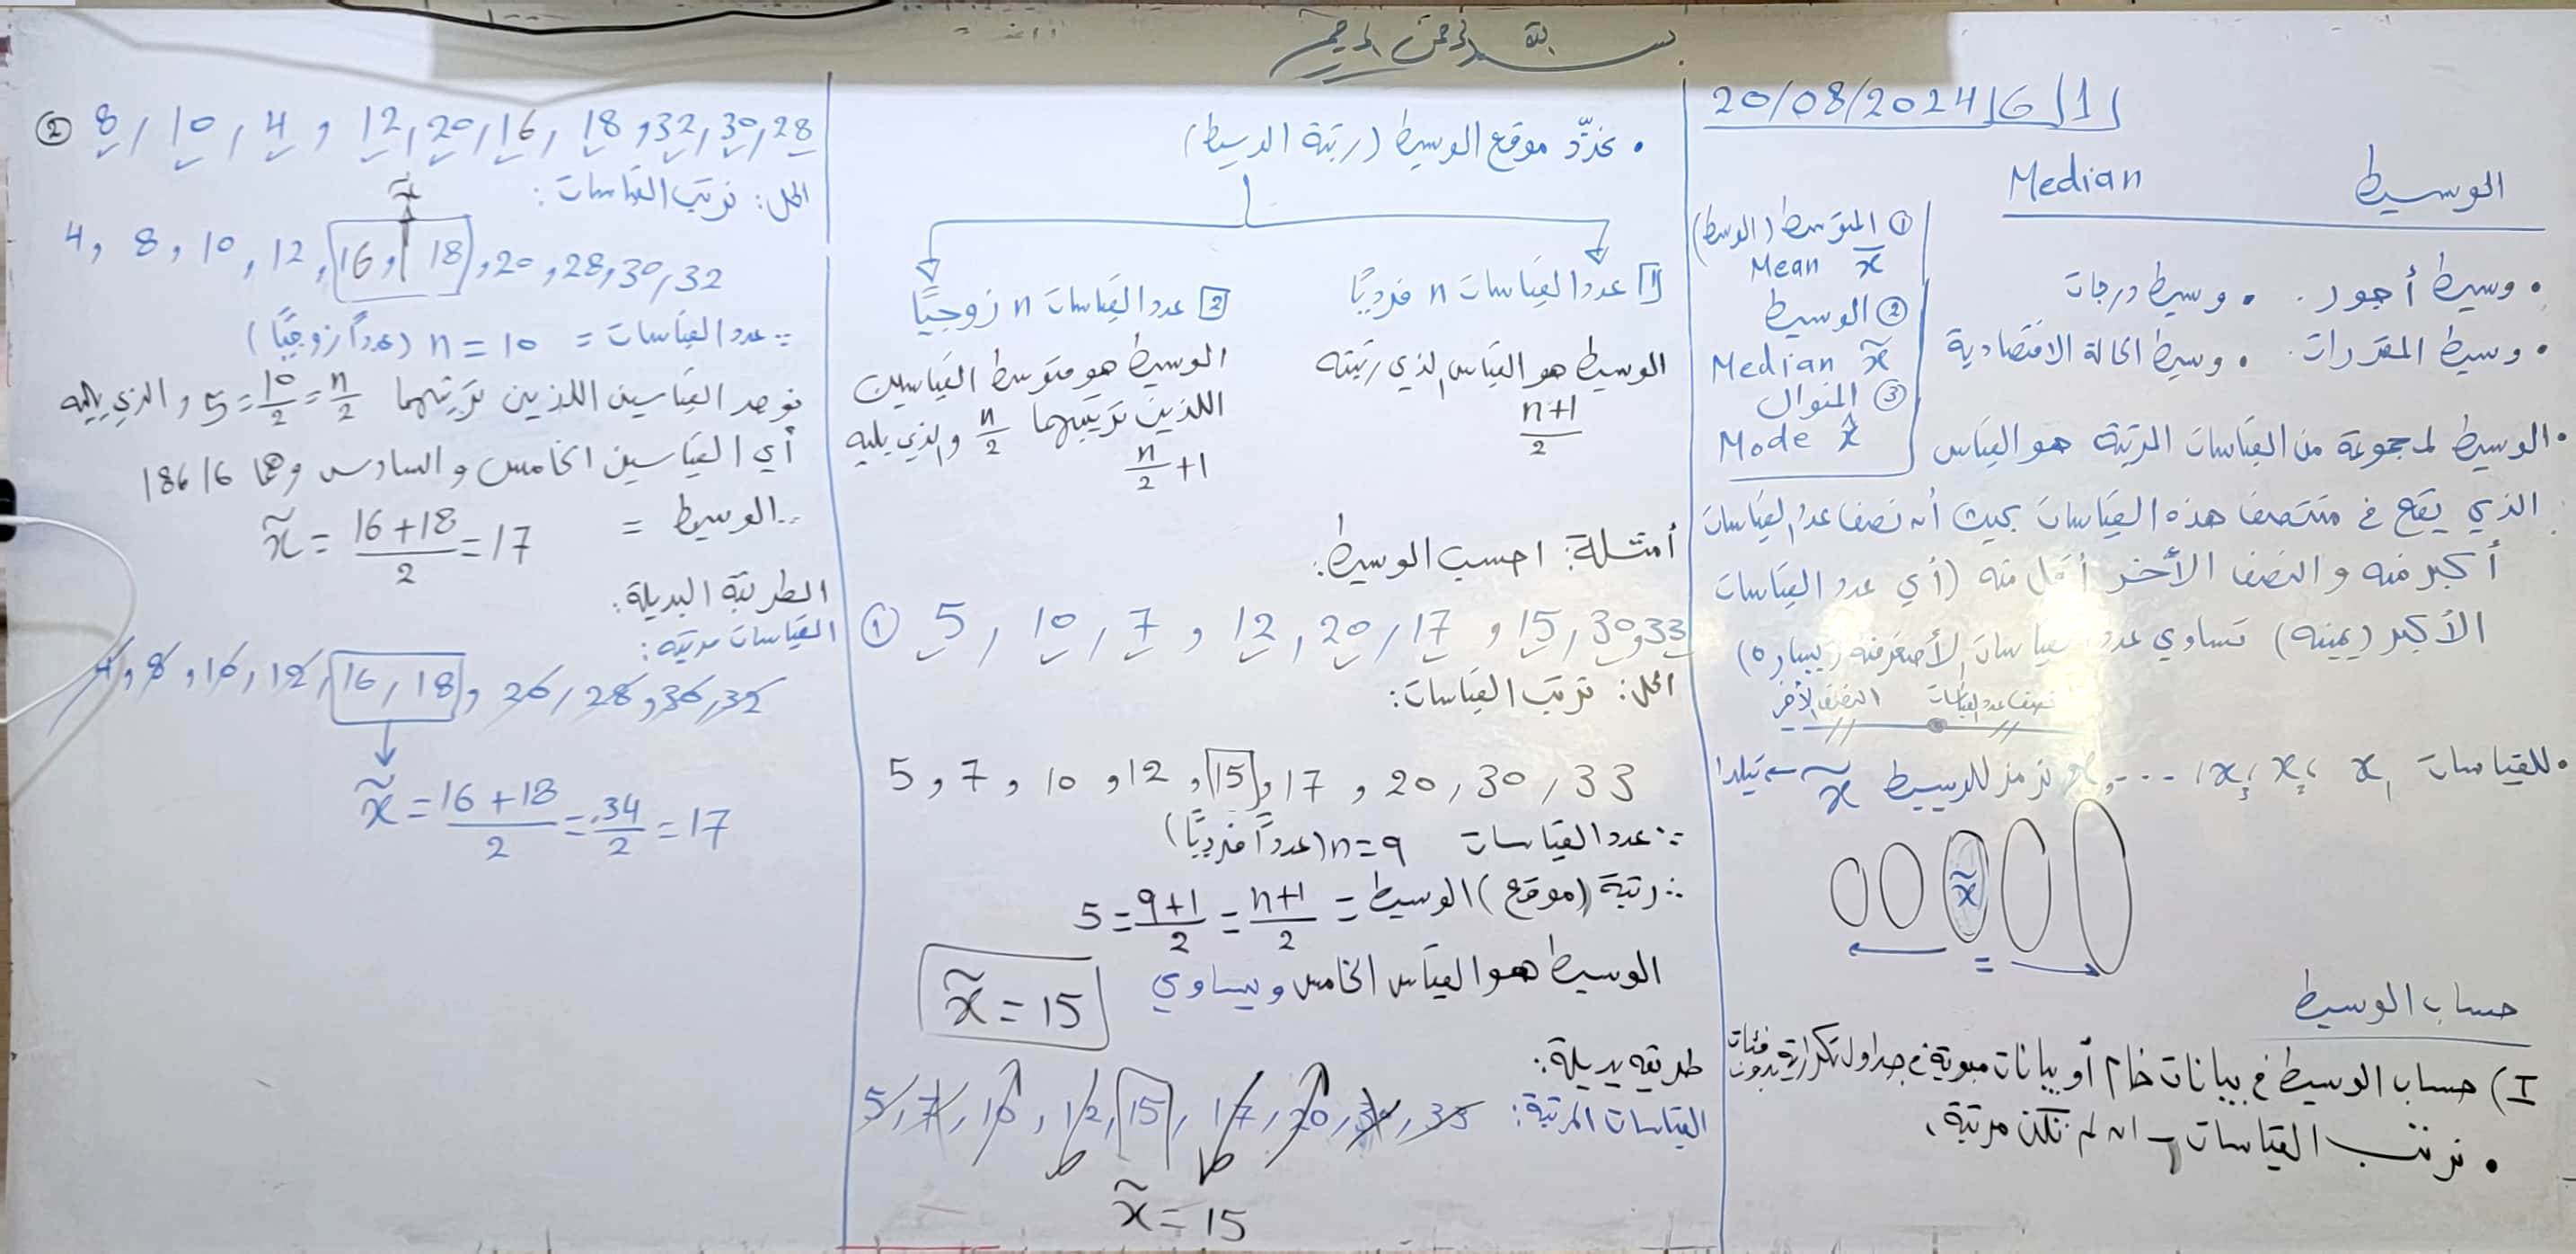 بسم الله الرحمن الرحيم
20/08/2024 | 6 | 1
الوسيط Median
① المتوسط (الوسط)
Mean x̄
② الوسيط
Median x̃
③ المنوال
Mode x̂
• وسيط أجور. • وسيط درجات
• وسيط المقررات. • وسيط الحالة الاقتصادية
• الوسيط لمجموعة من القياسات المرتبة هو القياس
الذي يقع في منتصف هذه القياسات بحيث أن نصف عدد القياسات
أكبر منه والنصف الآخر أقل منه (أي عدد القياسات
الأكبر (يمينه) تساوي عدد القياسات الأصغر منه (يساره)
نصف عدد القياسات النصف الآخر
• للقياسات x₁، x₂، x₃، ... نرمز للوسيط x̃ ← تيلدا
x̃
=
حساب الوسيط
I) حساب الوسيط في بيانات خام أو بيانات مبوبة في جداول تكرارية بدون فئات
• نرتب القياسات - ان لم تكن مرتبة.
• نحدّد موقع الوسيط (رتبة الوسيط)
1 عدد القياسات n فرديًا
الوسيط هو القياس الذي رتبته
(n+1)/2
2 عدد القياسات n زوجيًا
الوسيط هو متوسط القياسين
اللذين ترتيبهما n/2 والذي يليه
n/2 +1
أمثلة: احسب الوسيط:
① 5, 10, 7, 12, 20, 17, 15, 30, 33
الحل: نرتب القياسات:
5, 7, 10, 12, 15, 17, 20, 30, 33
∵ عدد القياسات n=9 (عددًا فرديًا)
∴ رتبة (موقع) الوسيط = (n+1)/2 = (9+1)/2 = 5
الوسيط هو القياس الخامس ويساوي
x̃ = 15
طريقه بديلة:
القياسات المرتبة: 5, 7, 10, 12, 15, 17, 20, 30, 33
x̃ = 15
② 8, 10, 4, 12, 20, 16, 18, 32, 30, 28
الحل: نرتب القياسات:
x̃
4, 8, 10, 12, 16, 18, 20, 28, 30, 32
∵ عدد القياسات = n = 10 (عددًا زوجيًا)
نوجد القياسين اللذين ترتيبهما n/2 = 10/2 = 5 والذي يليه
أي القياسين الخامس والسادس وهما 16 و 18
∴ الوسيط = x̃ = (16+18)/2 = 17
الطريقة البديلة:
القياسات مرتبه:
4, 8, 10, 12, 16, 18, 20, 28, 30, 32
x̃ = (16+18)/2 = 34/2 = 17